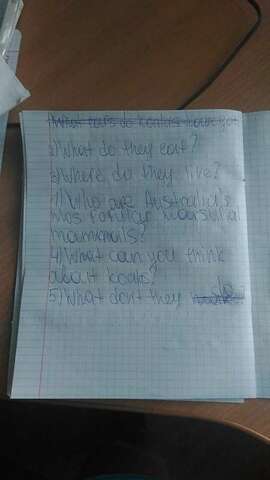 1) What eats do koalas
2) What do they eat?
3) Where do they live?
1) Who are Australia's
mos marsupial
mammals?
4) What can you think
about koalas?
5) What don't they do